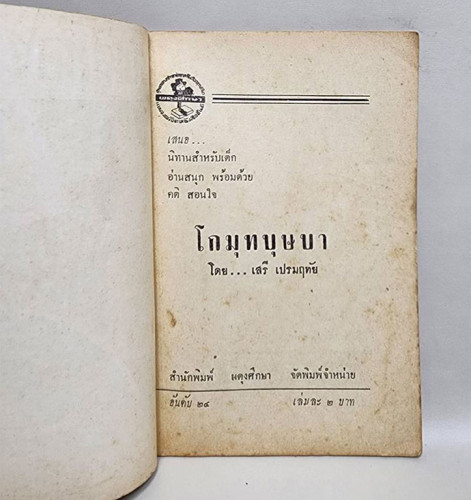 ผดุงศึกษา
เสนอ...
นิทานสำหรับเด็ก
อ่านสนุก พร้อมด้วย
คติ สอนใจ
โกมุทบุษบา
โดย...เสรี เปรมฤทัย
สำนักพิมพ์ ผดุงศึกษา จัดพิมพ์จำหน่าย
อันดับ ๒๔ เล่มละ ๒ บาท